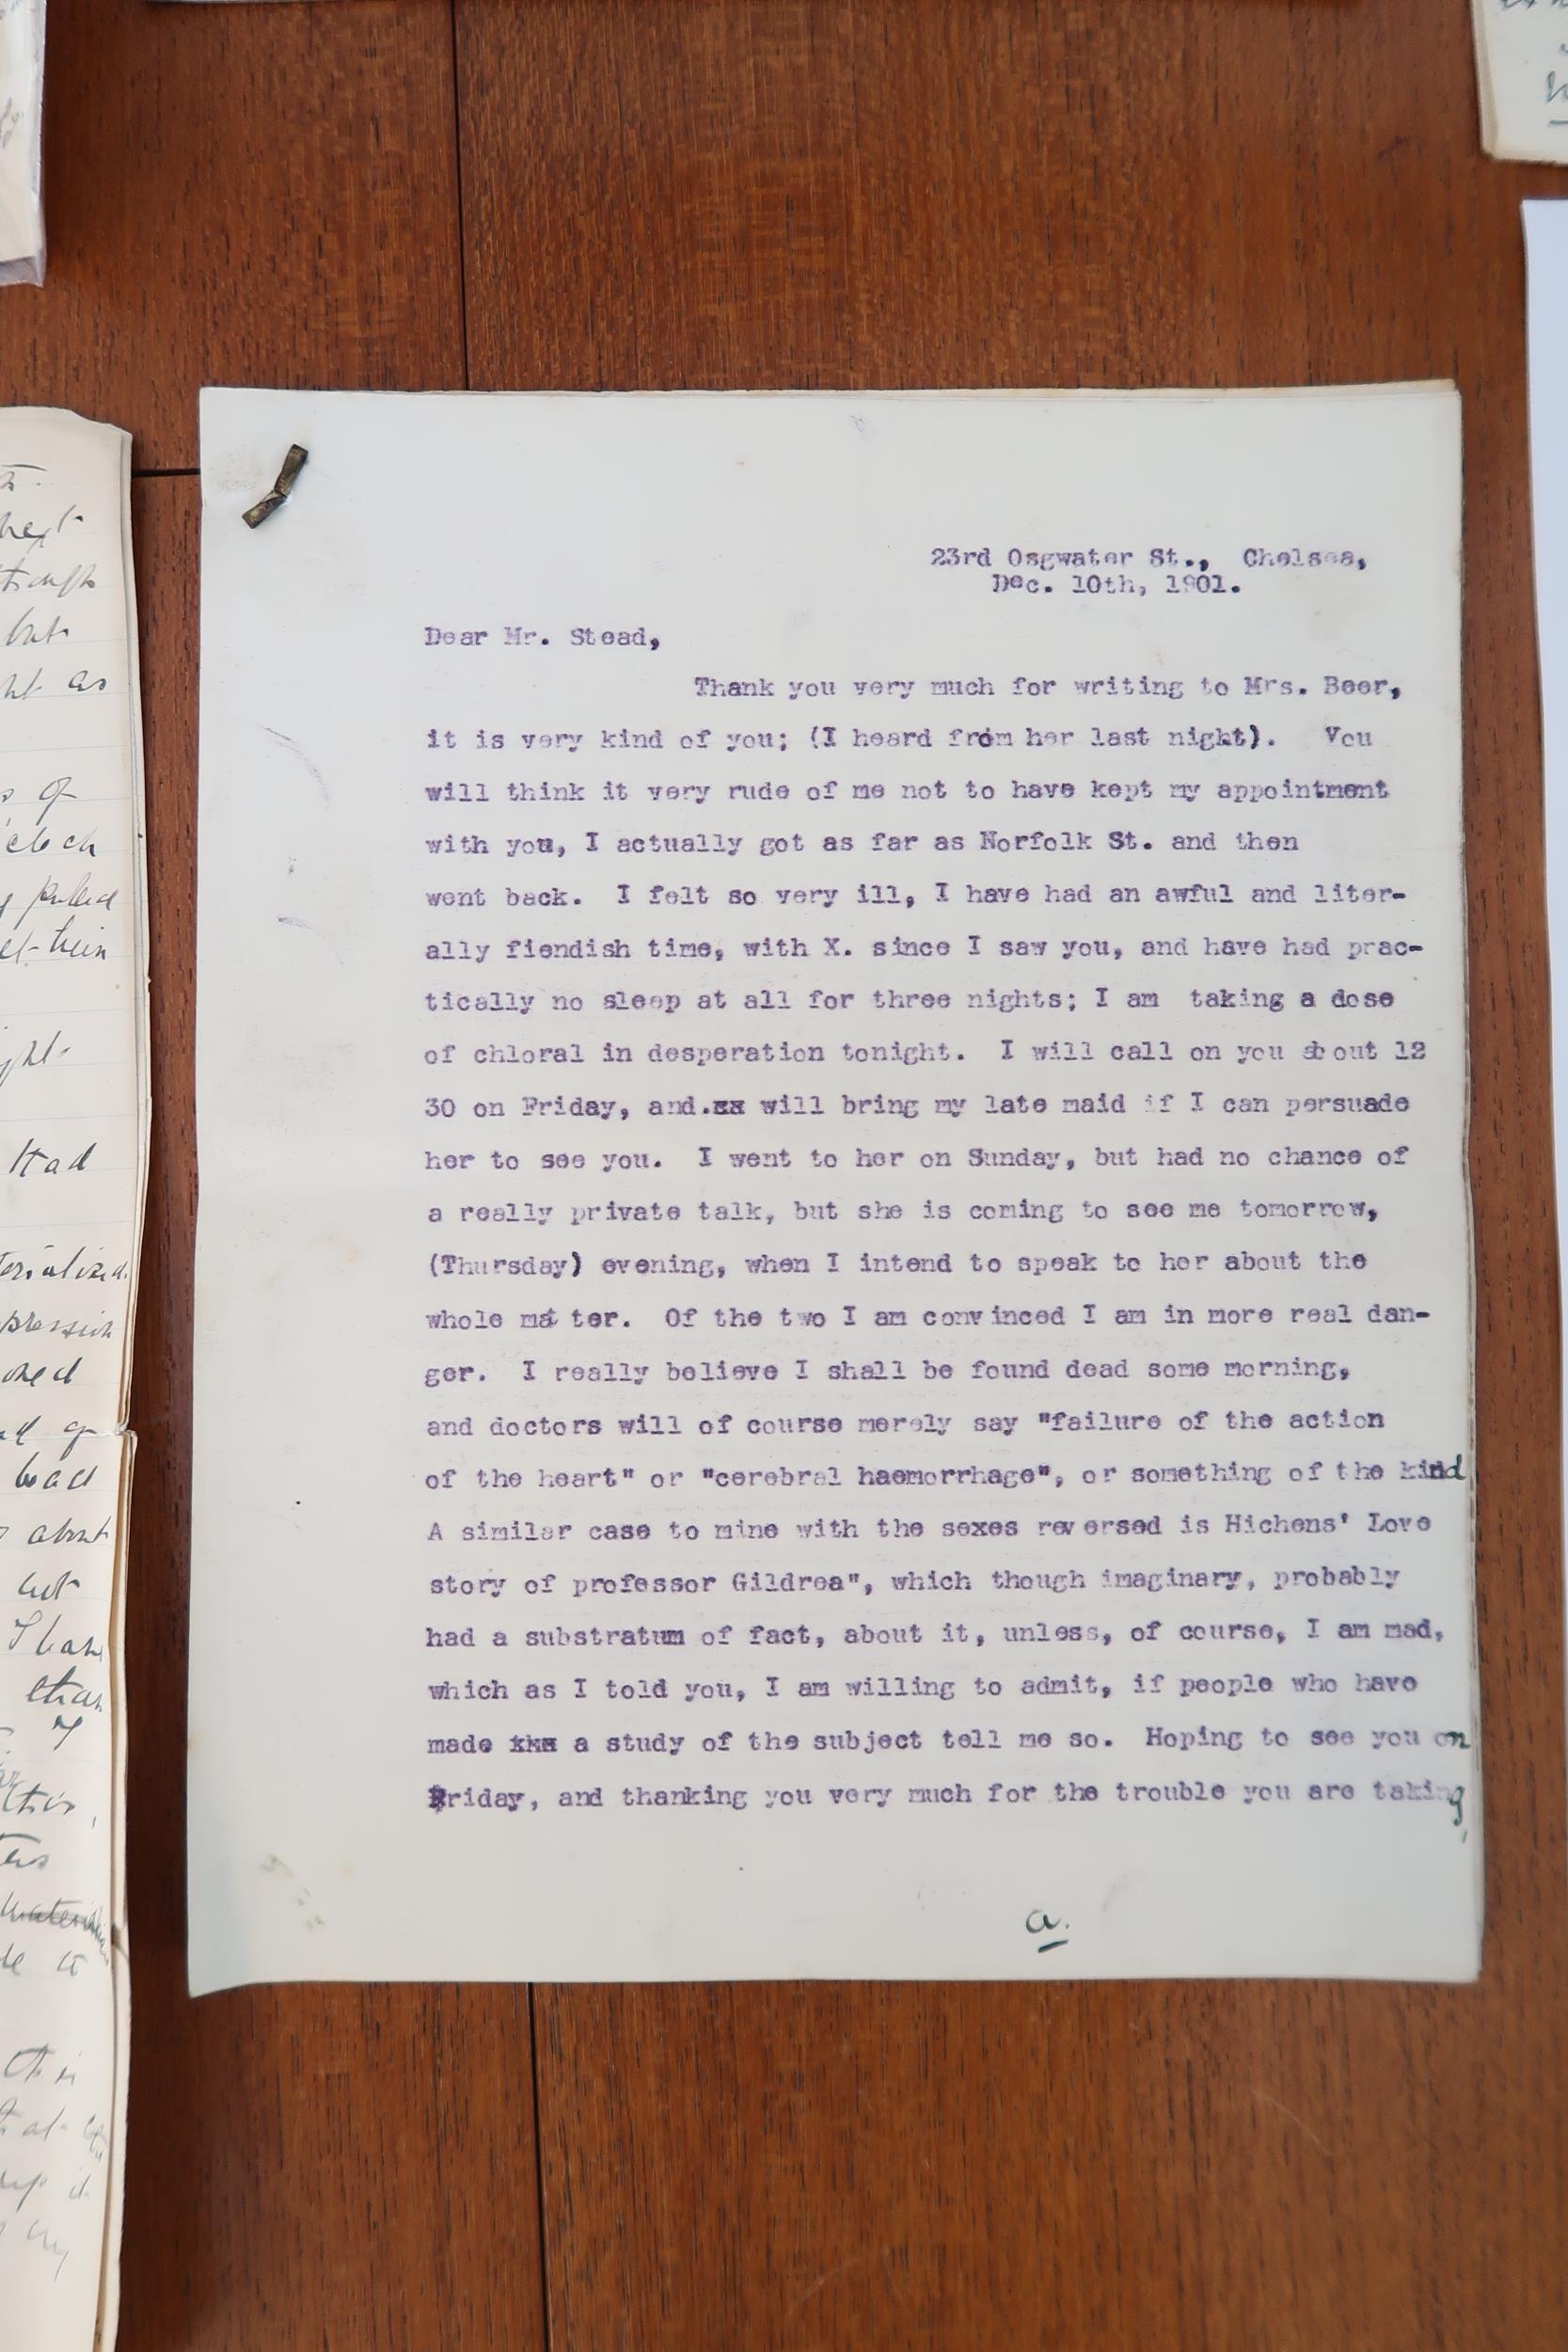 23rd Osgwater St., Chelsea,
Dec. 10th, 1901.
Dear Mr. Stead,
Thank you very much for writing to Mrs. Beer,
it is very kind of you; (I heard from her last night). You
will think it very rude of me not to have kept my appointment
with you, I actually got as far as Norfolk St. and then
went back. I felt so very ill, I have had an awful and liter-
ally fiendish time, with X. since I saw you, and have had prac-
tically no sleep at all for three nights; I am taking a dose
of chloral in desperation tonight. I will call on you about 12
30 on Friday, and.xx will bring my late maid if I can persuade
her to see you. I went to her on Sunday, but had no chance of
a really private talk, but she is coming to see me tomorrow,
(Thursday) evening, when I intend to speak to her about the
whole mat ter. Of the two I am convinced I am in more real dan-
ger. I really believe I shall be found dead some morning,
and doctors will of course merely say "failure of the action
of the heart" or "cerebral haemorrhage", or something of the kind
A similar case to mine with the sexes reversed is Hichens' Love
story of professor Gildrea", which though imaginary, probably
had a substratum of fact, about it, unless, of course, I am mad,
which as I told you, I am willing to admit, if people who have
made xxx a study of the subject tell me so. Hoping to see you on
Friday, and thanking you very much for the trouble you are taking,
a.
but
as
of
Had
about